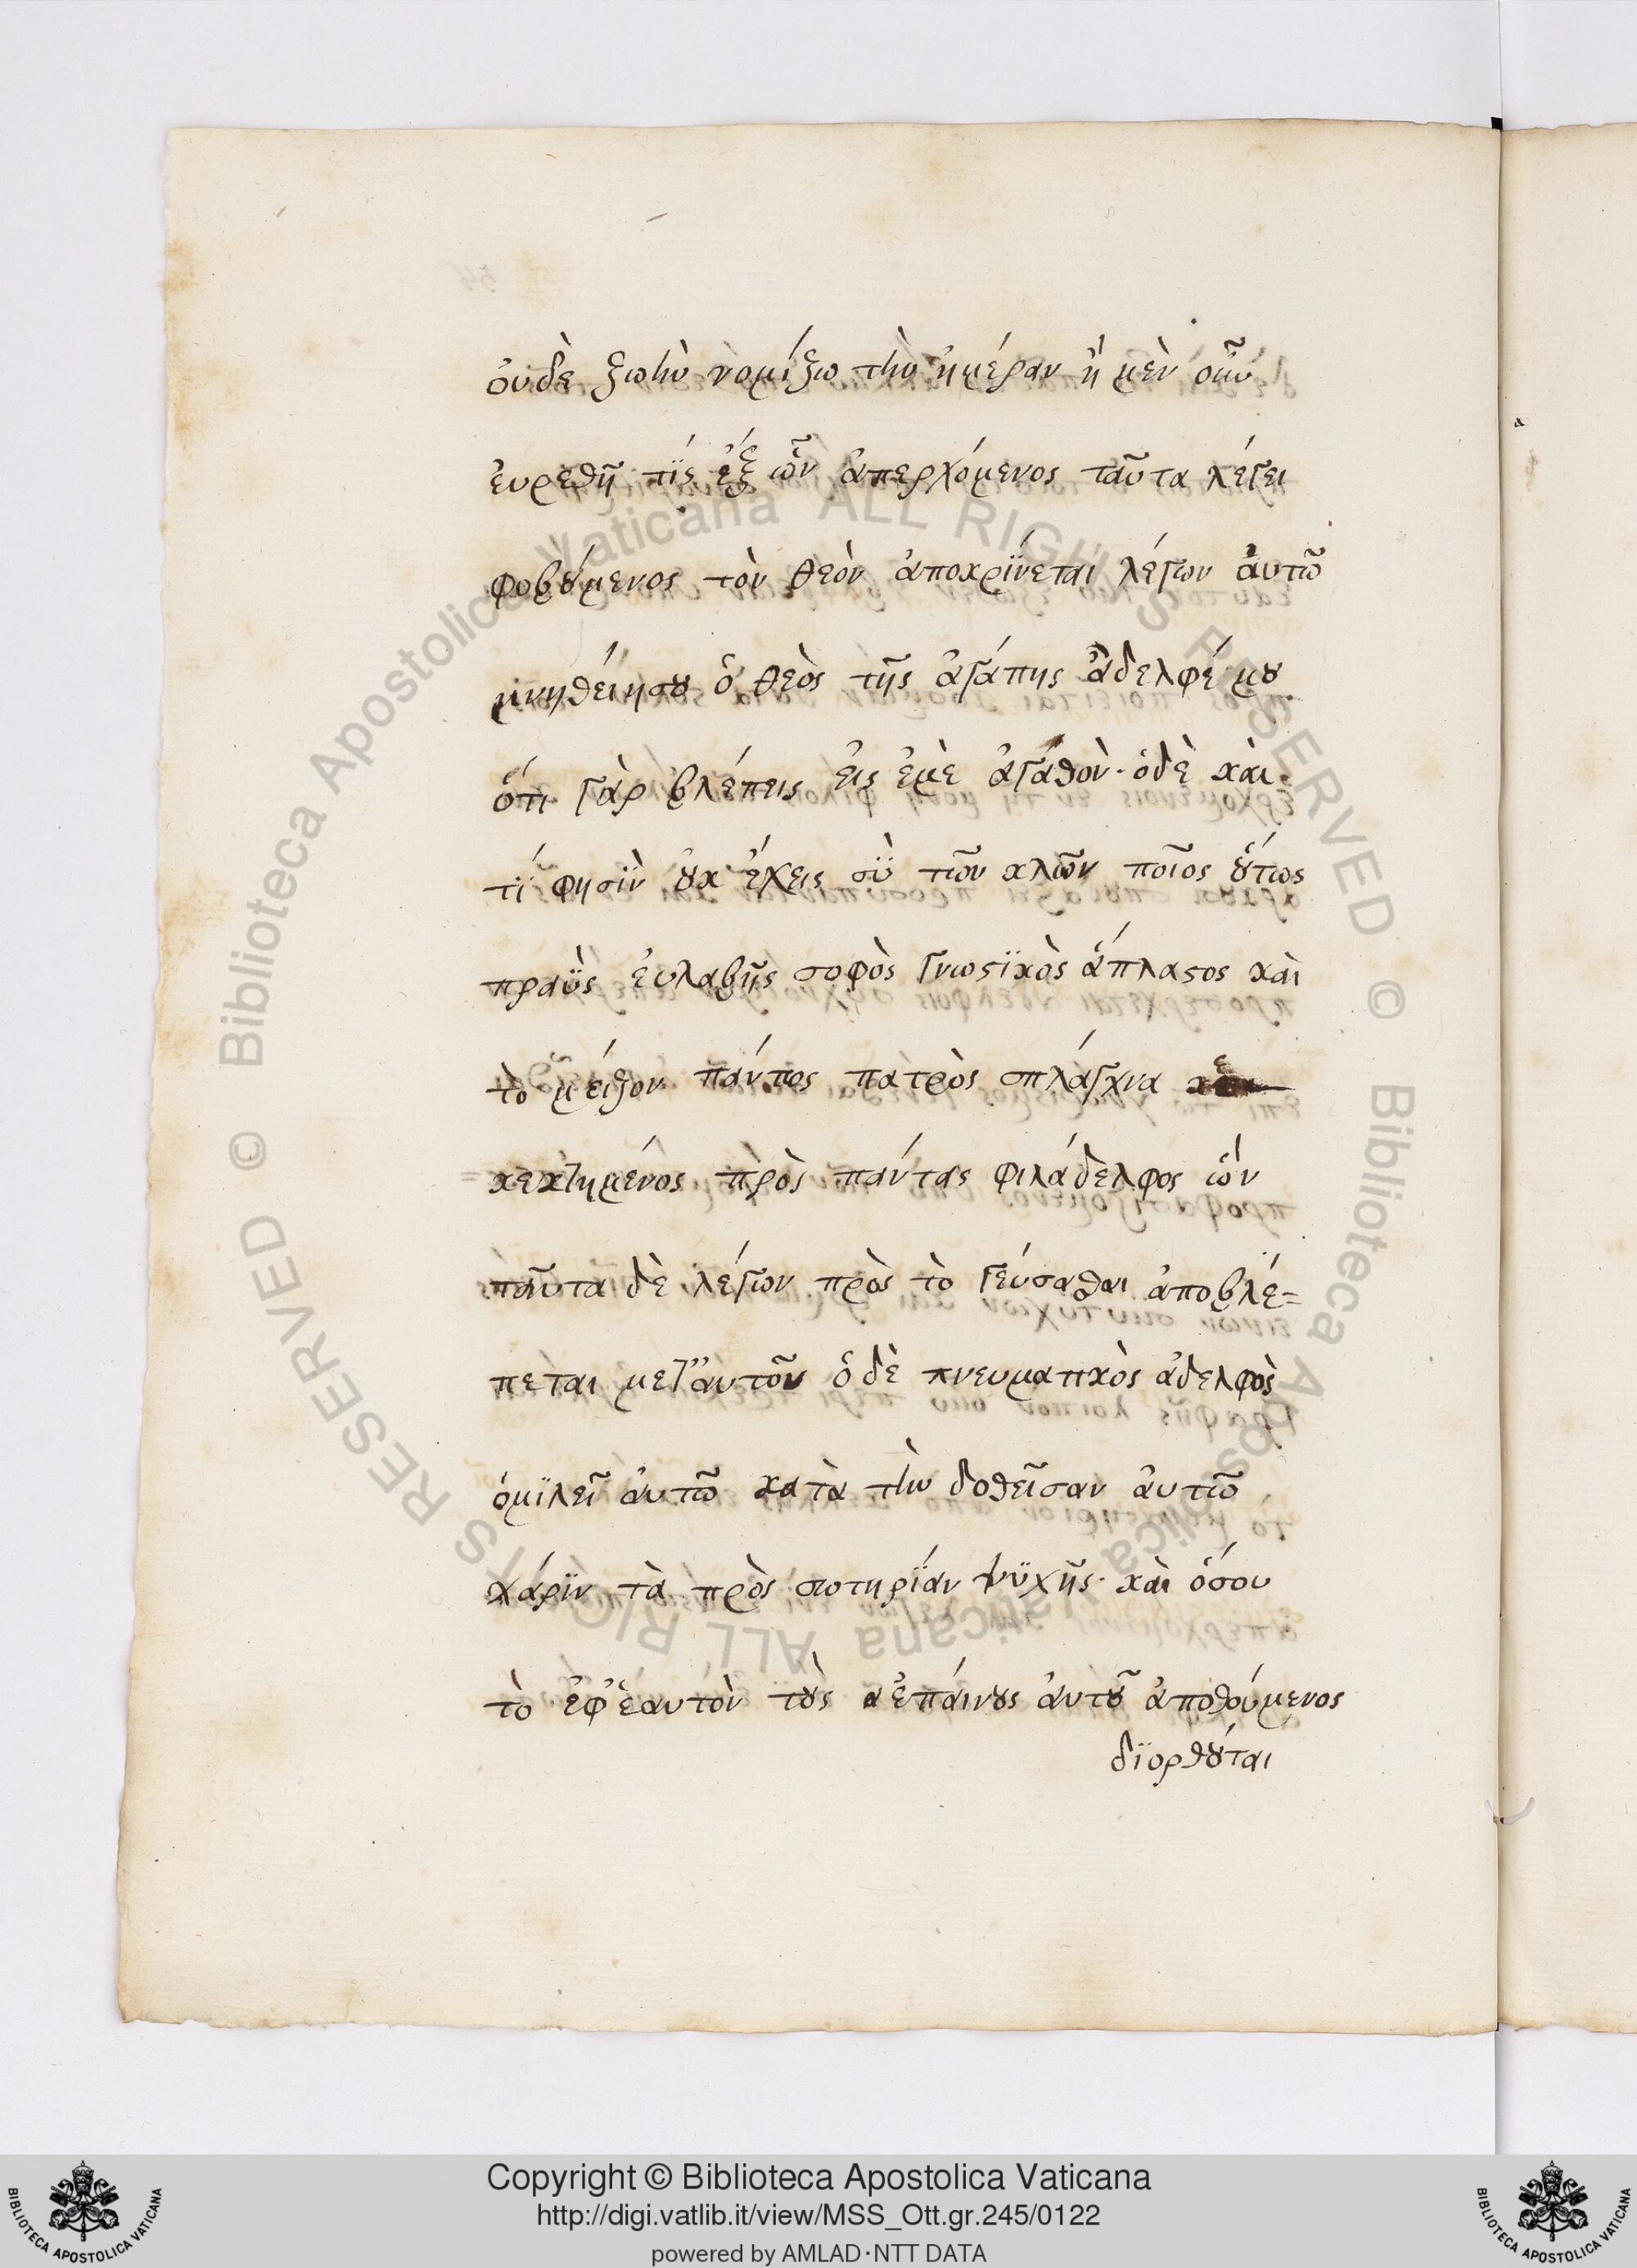 ὀυδὲ ζωὴν νομίζω τὴν ἡμέραν ἢ μὲν οὖν
ἑυρεθῆ τίς ἐξ ὧν ἀπερχόμενος ταῦτα λέγει
φοβούμενος τὸν θεὸν ἀποκρίνεται λέγων ἀυτῶ
μνηθείησου ὁ θεὸς τῆς ἀγάπης ἀδελφέ μου
ὅτι γὰρ βλέπεις ἐις ἐμὲ ἀγαθὸν· ὁδὲ κὰι
τί φησὶν ὀυκ ἔχεις σὺ τῶν κλῶν ποῖος ὅυτως
πραῢς ἐυλαβῆς σοφὸς γνωστϊκὸς ἄπλαστος κὰι
τὸ μεῖζον πάντος πατρὸς σπλάγχνα
κεκτημένος πρὸς παντας φιλάδελφος ὢν
ταῦτα δὲ λέγων πρὸς τὸ γεύσασθαι ἀποβλέ=
πεται μετ' ἀυτῶν ὁ δὲ πνευματικὸς ἀδελφὸς
ὁμϊλεῖ ἀυτῶ κατὰ τὴν δοθεῖσαν ἀυτῶ
χάρϊν τὰ πρὸς σωτηρίαν ψϋχῆς· κὰι ὅσου
τὸ ἐφ' ἑαυτὸν τοὺς ἐπάινους ἀυτοῦ ἀποθούμενος
δϊορθοῦται
Copyright © Biblioteca Apostolica Vaticana
http://digi.vatlib.it/view/MSS_Ott.gr.245/0122
powered by AMLAD·NTT DATA
BIBLIOTECA APOSTOLICA VATICANA
BIBLIOTECA APOSTOLICA VATICANA
© Biblioteca Apostolica Vaticana ALL RIGHTS RESERVED © Biblioteca Apostolica Vaticana ALL RIGHTS RESERVED